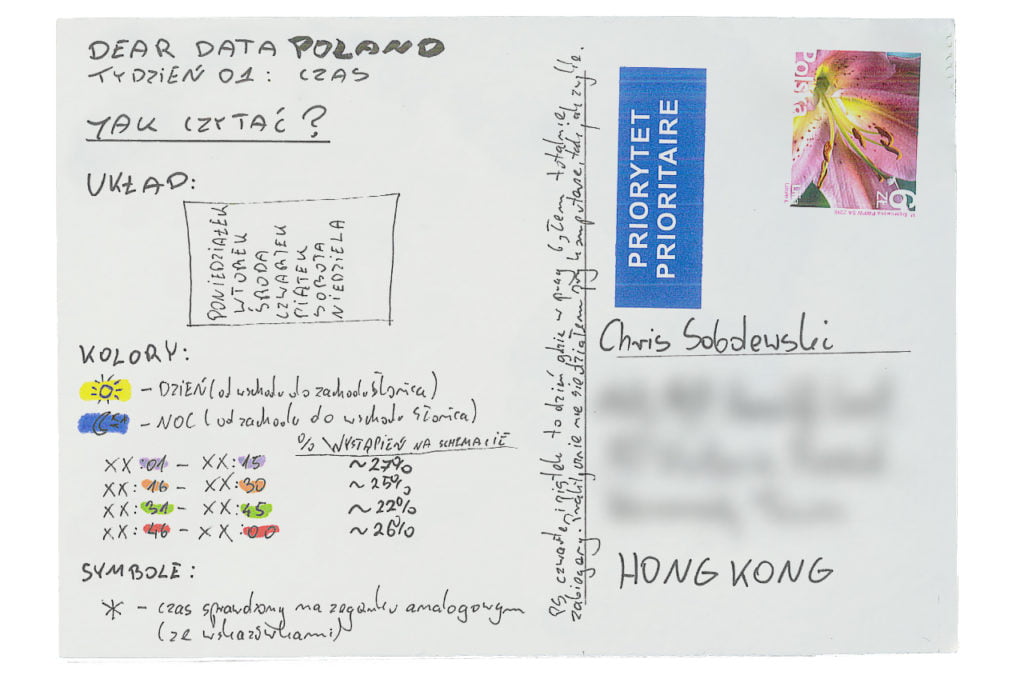 DEAR DATA POLAND
TYDZIEŃ 01: CZAS
JAK CZYTAĆ?
UKŁAD:
PONIEDZIAŁEK
WTOREK
ŚRODA
CZWARTEK
PIĄTEK
SOBOTA
NIEDZIELA
KOLORY:
- DZIEŃ (od wschodu do zachodu Słońca)
- NOC (od zachodu do wschodu Słońca)
% WYSTĄPIEŃ NA SCHEMACIE
XX:01 - XX:15 ~27%
XX:16 - XX:30 ~25%
XX:31 - XX:45 ~22%
XX:46 - XX:00 ~26%
SYMBOLE:
* - czas sprawdzony na zegarku analogowym
(ze wskazówkami)
PS. czwartek i piątek to dzień gdzie w pracy byłem totalnie
zabiegany. Praktycznie nie siedziałem przy komputerze,
PRIORYTET
PRIORITAIRE
6 ZŁ
Chris Sobolewski
HONG KONG